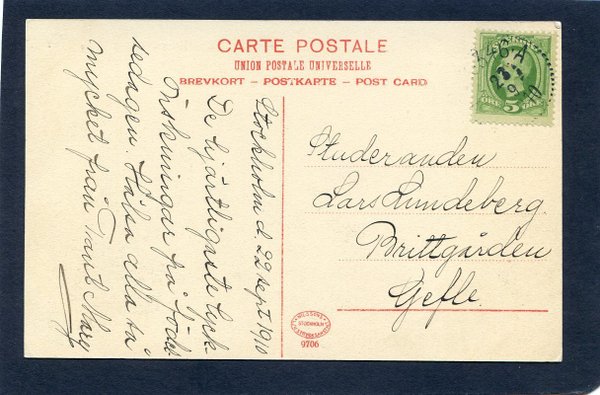 CARTE POSTALE
UNION POSTALE UNIVERSELLE
BREVKORT – POSTKARTE – POST CARD
Stockholm d 22 sept 1910
De hjärtligaste lyck-
önskningar på födel-
sedagen. Hälsa alla så
mycket från Tant Mary
Studeranden
Lars Lundeberg.
Brittgården
Gefle.
ÖRE 5 ÖRE
STOCKHOLM
9706